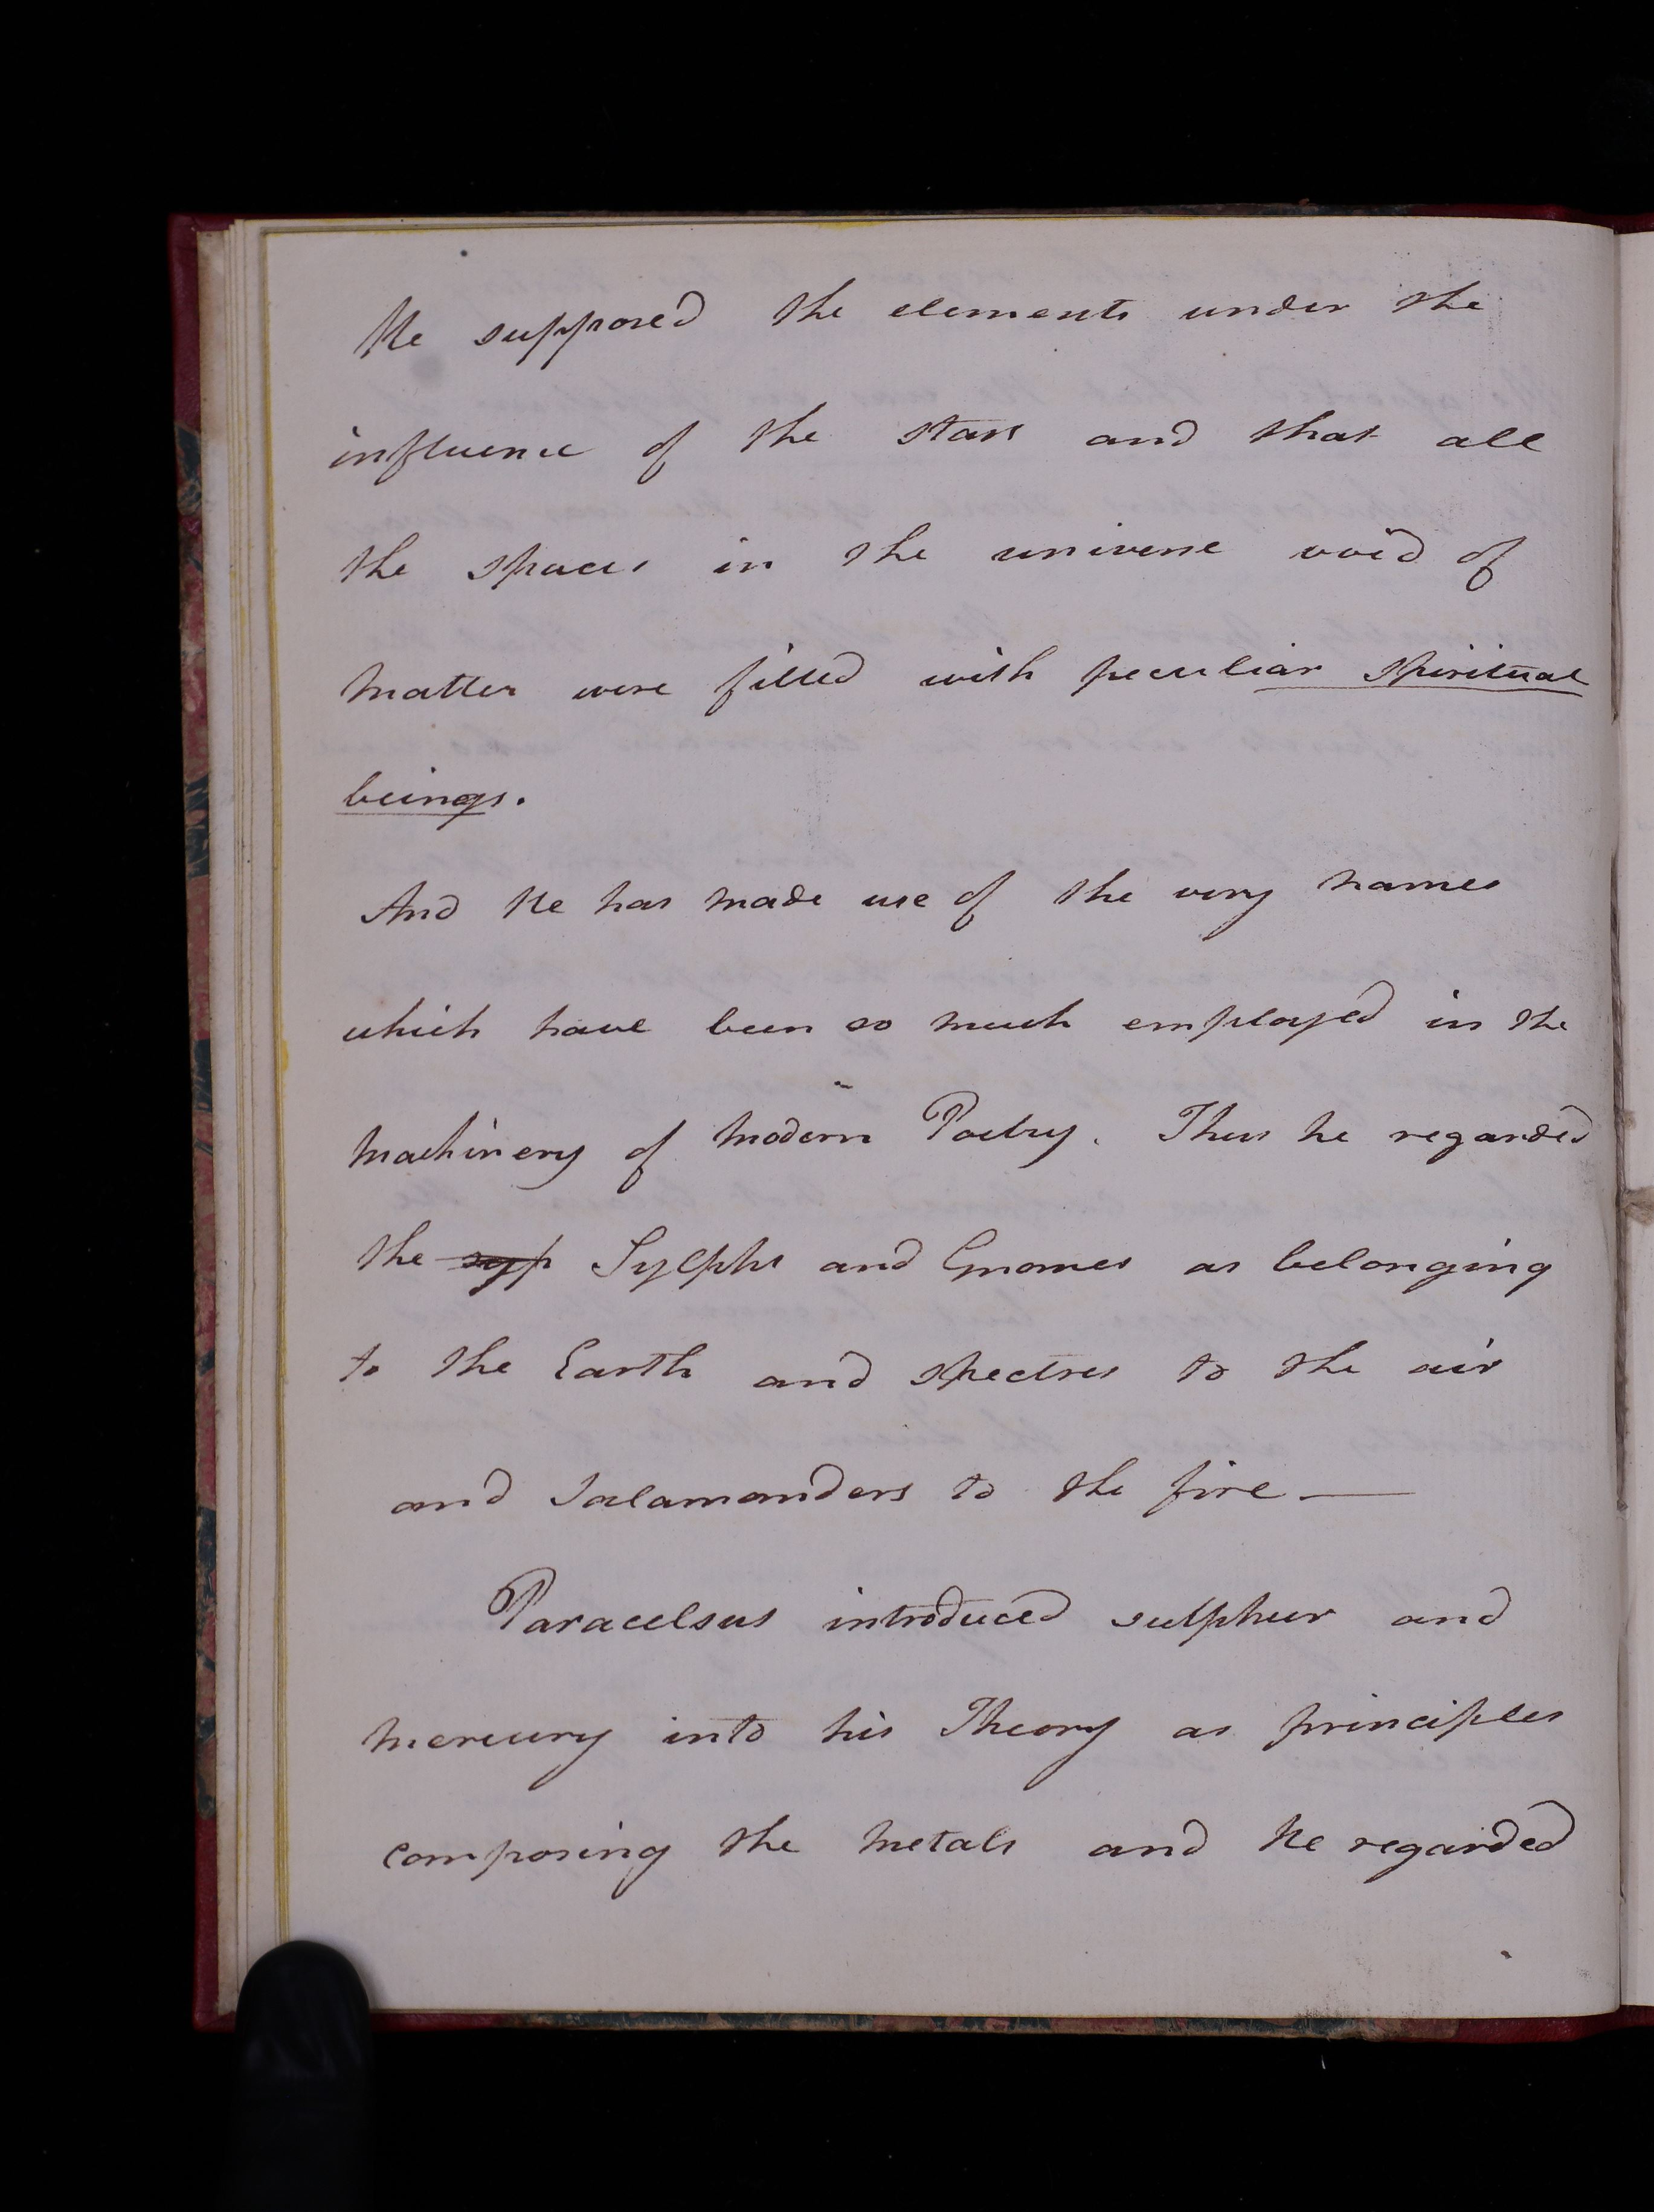 He supposed the elements under the
influence of the stars and that all
the spaces in the universe void of
matter were filled with peculiar spiritual
beings.
And He has made use of the very names
which have been so much employed in the
machinery of modern Poetry. Thus he regarded
the syp Sylphs and Gnomes as belonging
to the Earth and spectres to the air
and Salamanders to the fire —
Paracelsus introduced sulphur and
mercury into his Theory as principles
composing the metals and He regarded